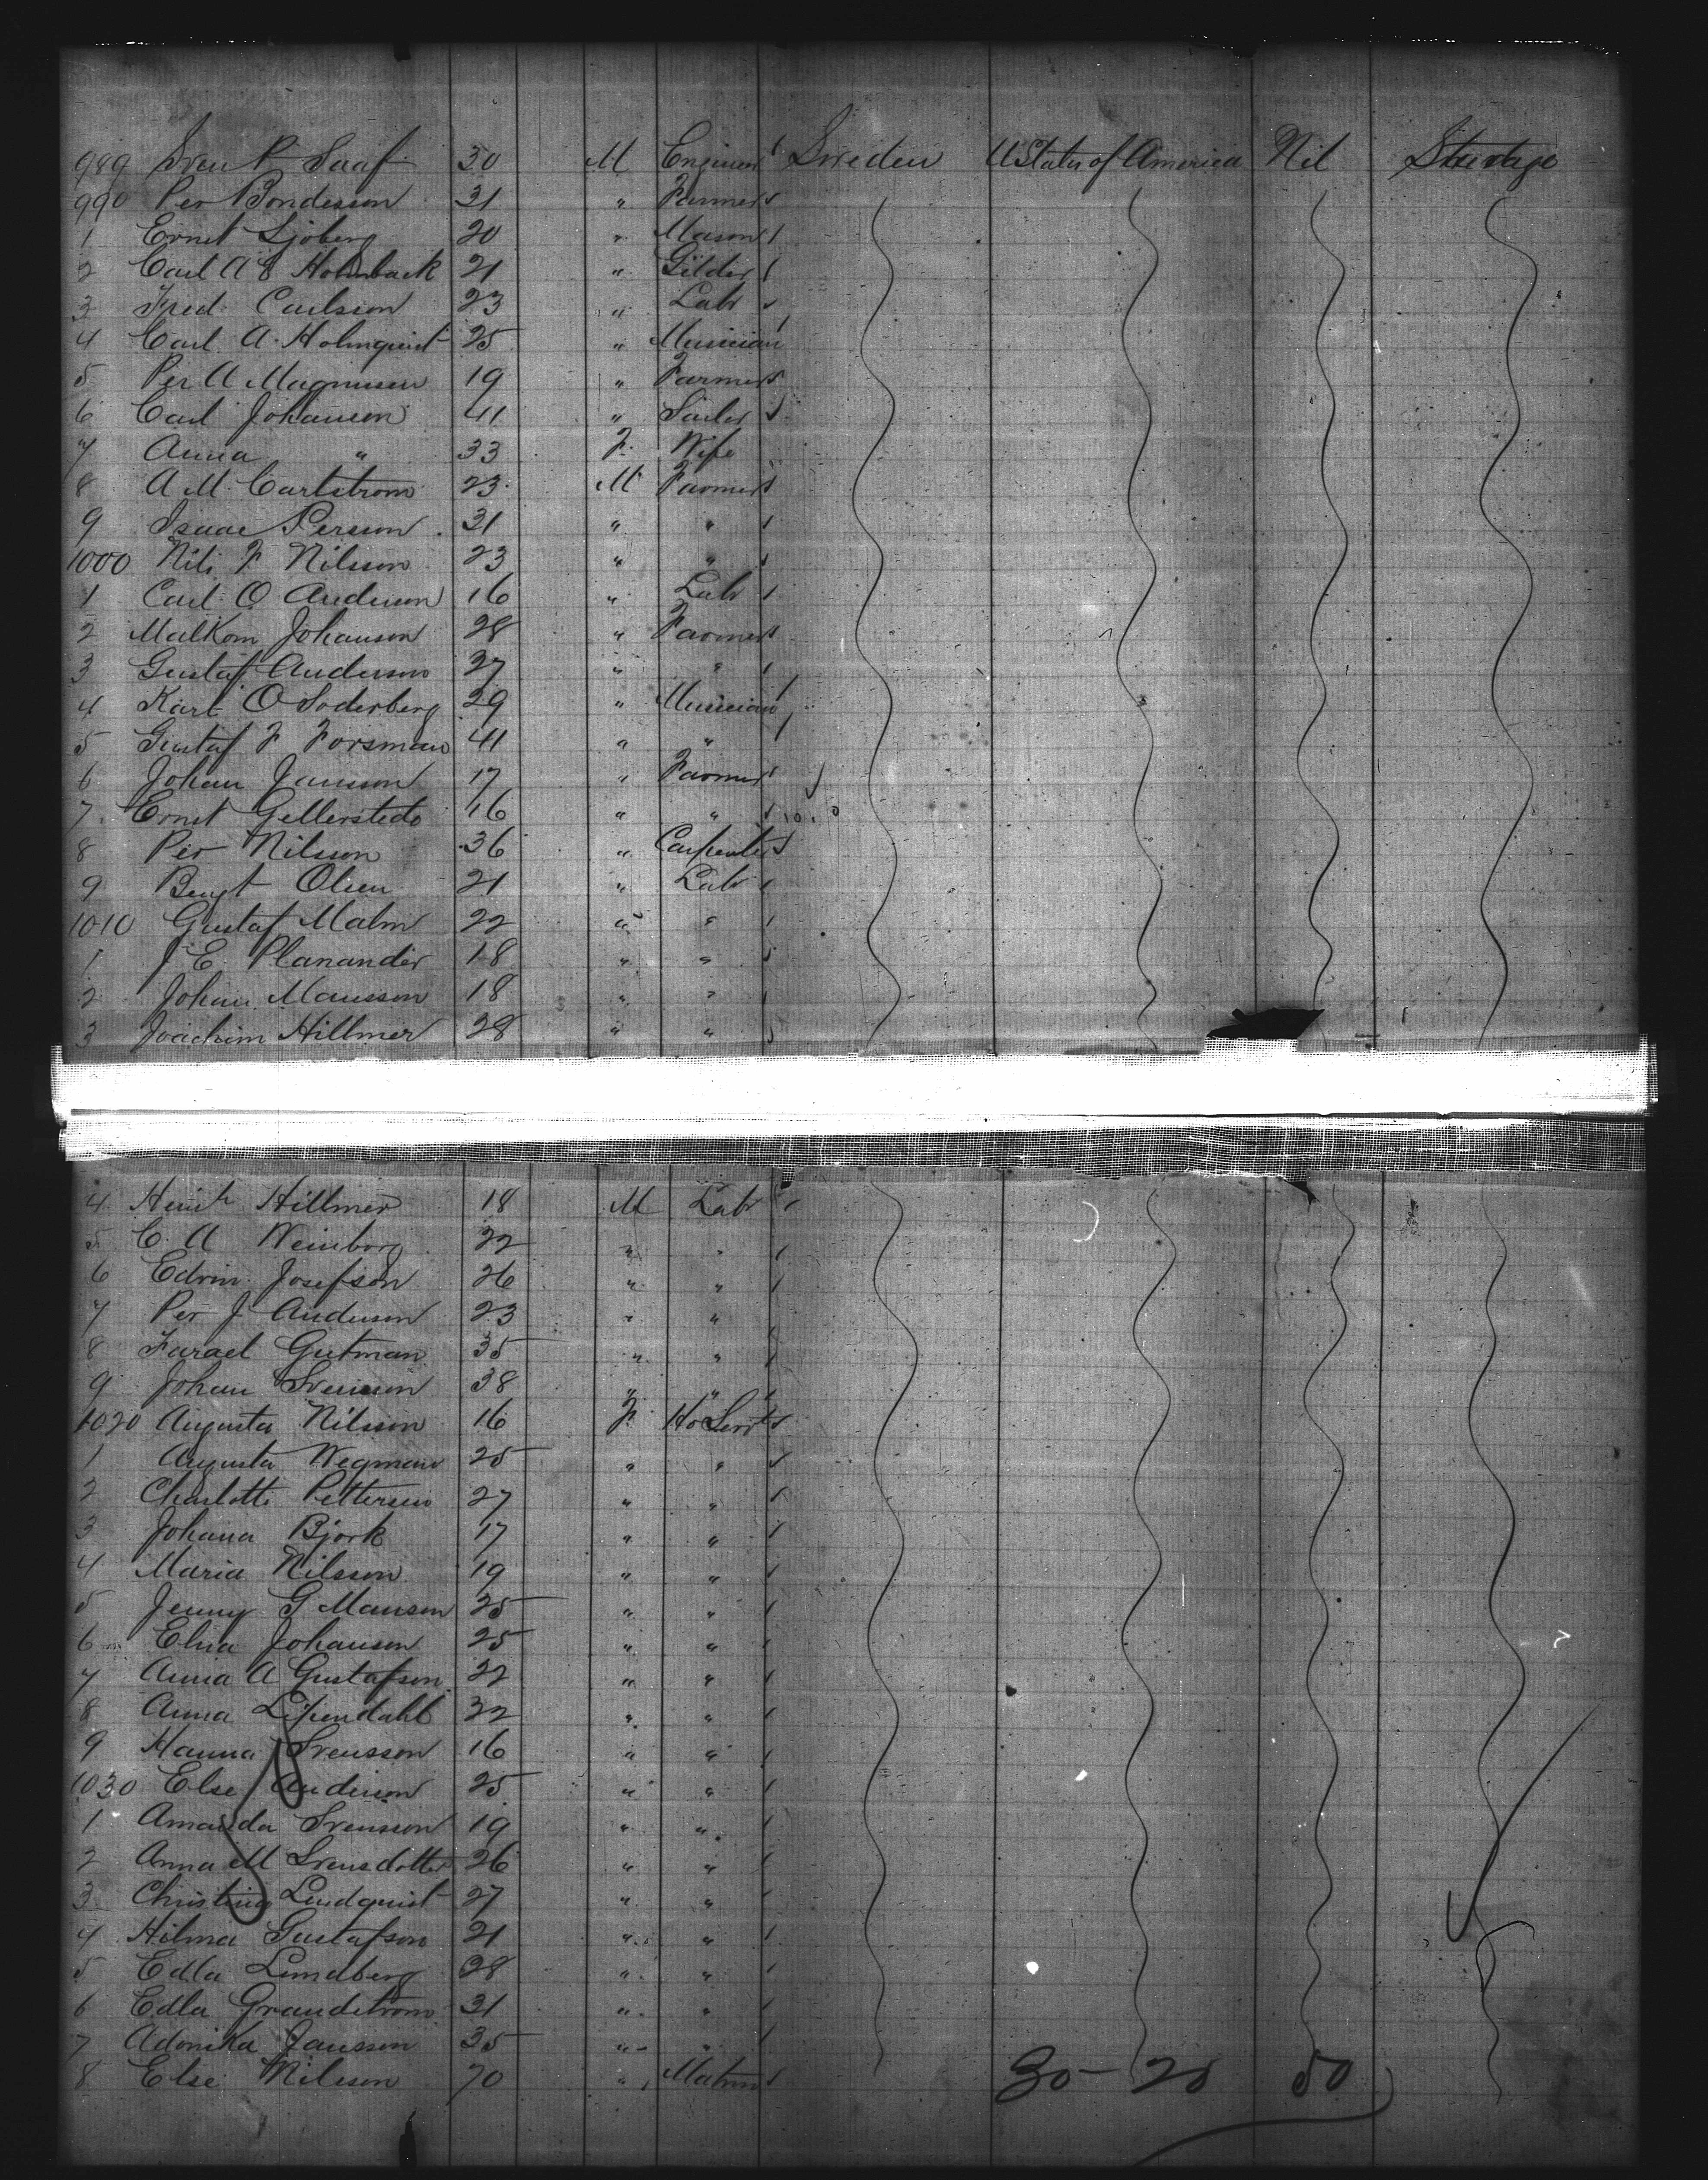 989 Sven P Saaf 30 M Engineer Sweden U States of America Nil Steerage
990 Per Bondesson 31 " Farmer
1 Ernst Sjoberg 20 " Mason
2 Carl A E Holmback 21 " Gilder
3 Fred Carlsson 23 " Labr
4 Carl A Holmquist 25 " Musician
5 Per A Magnusen 19 " Farmer
6 Carl Johanson 41 " Sailor
7 Anna " 33 F Wife
8 A M Carlstrom 23 M Farmer
9 Isaac Persson 31 " "
1000 Nils F Nilsson 23 " "
1 Carl O Anderson 16 " Labr
2 Malkom Johanson 28 " Farmer
3 Gustaf Anderson 37 " "
4 Karl O Soderberg 29 " Musician
5 Gustaf F Forsman 41 " "
6 Johan Jansson 17 " Farmer
7 Ernst Gellerstedo 16 " "
8 Per Nilsson 36 " Carpenter
9 Bengt Olsen 21 " Labr
1010 Gustaf Malm 22 " "
1 J E Planander 18 " "
2 Johan Mansson 18 " "
3 Joachim Hillmer 28 " "
4 Heinh Hillmer 18 M Labr
5 C A Weinborg 22 " "
6 Edvin Josefson 26 " "
7 Per J Anderson 23 " "
8 Israel Gutman 35 " "
9 Johan Svensson 38 " "
1020 Augusta Nilsson 16 F Ho Servt
1 Augusta Wegman 25 " "
2 Charlotte Petterson 27 " "
3 Johana Bjork 17 " "
4 Maria Nilsson 19 " "
5 Jenny G Manson 25 " "
6 Elna Johanson 25 " "
7 Anna A Gustafson 22 " "
8 Anna 22 " "
9 Hanna Svensson 16 " "
1030 Else Anderson 25 " "
1 Amanda Svensson 19 " "
2 Anna M Svensdotter 26 " "
3 Christina Lindquist 27 " "
4 Hilma Gustafson 21 " "
5 Edla Lundberg 28 " "
6 Edla Grandstrom 31 " "
7 Adonika Jansson 35 " "
8 Else Nilsson 70 " Matron
30 - 20 50